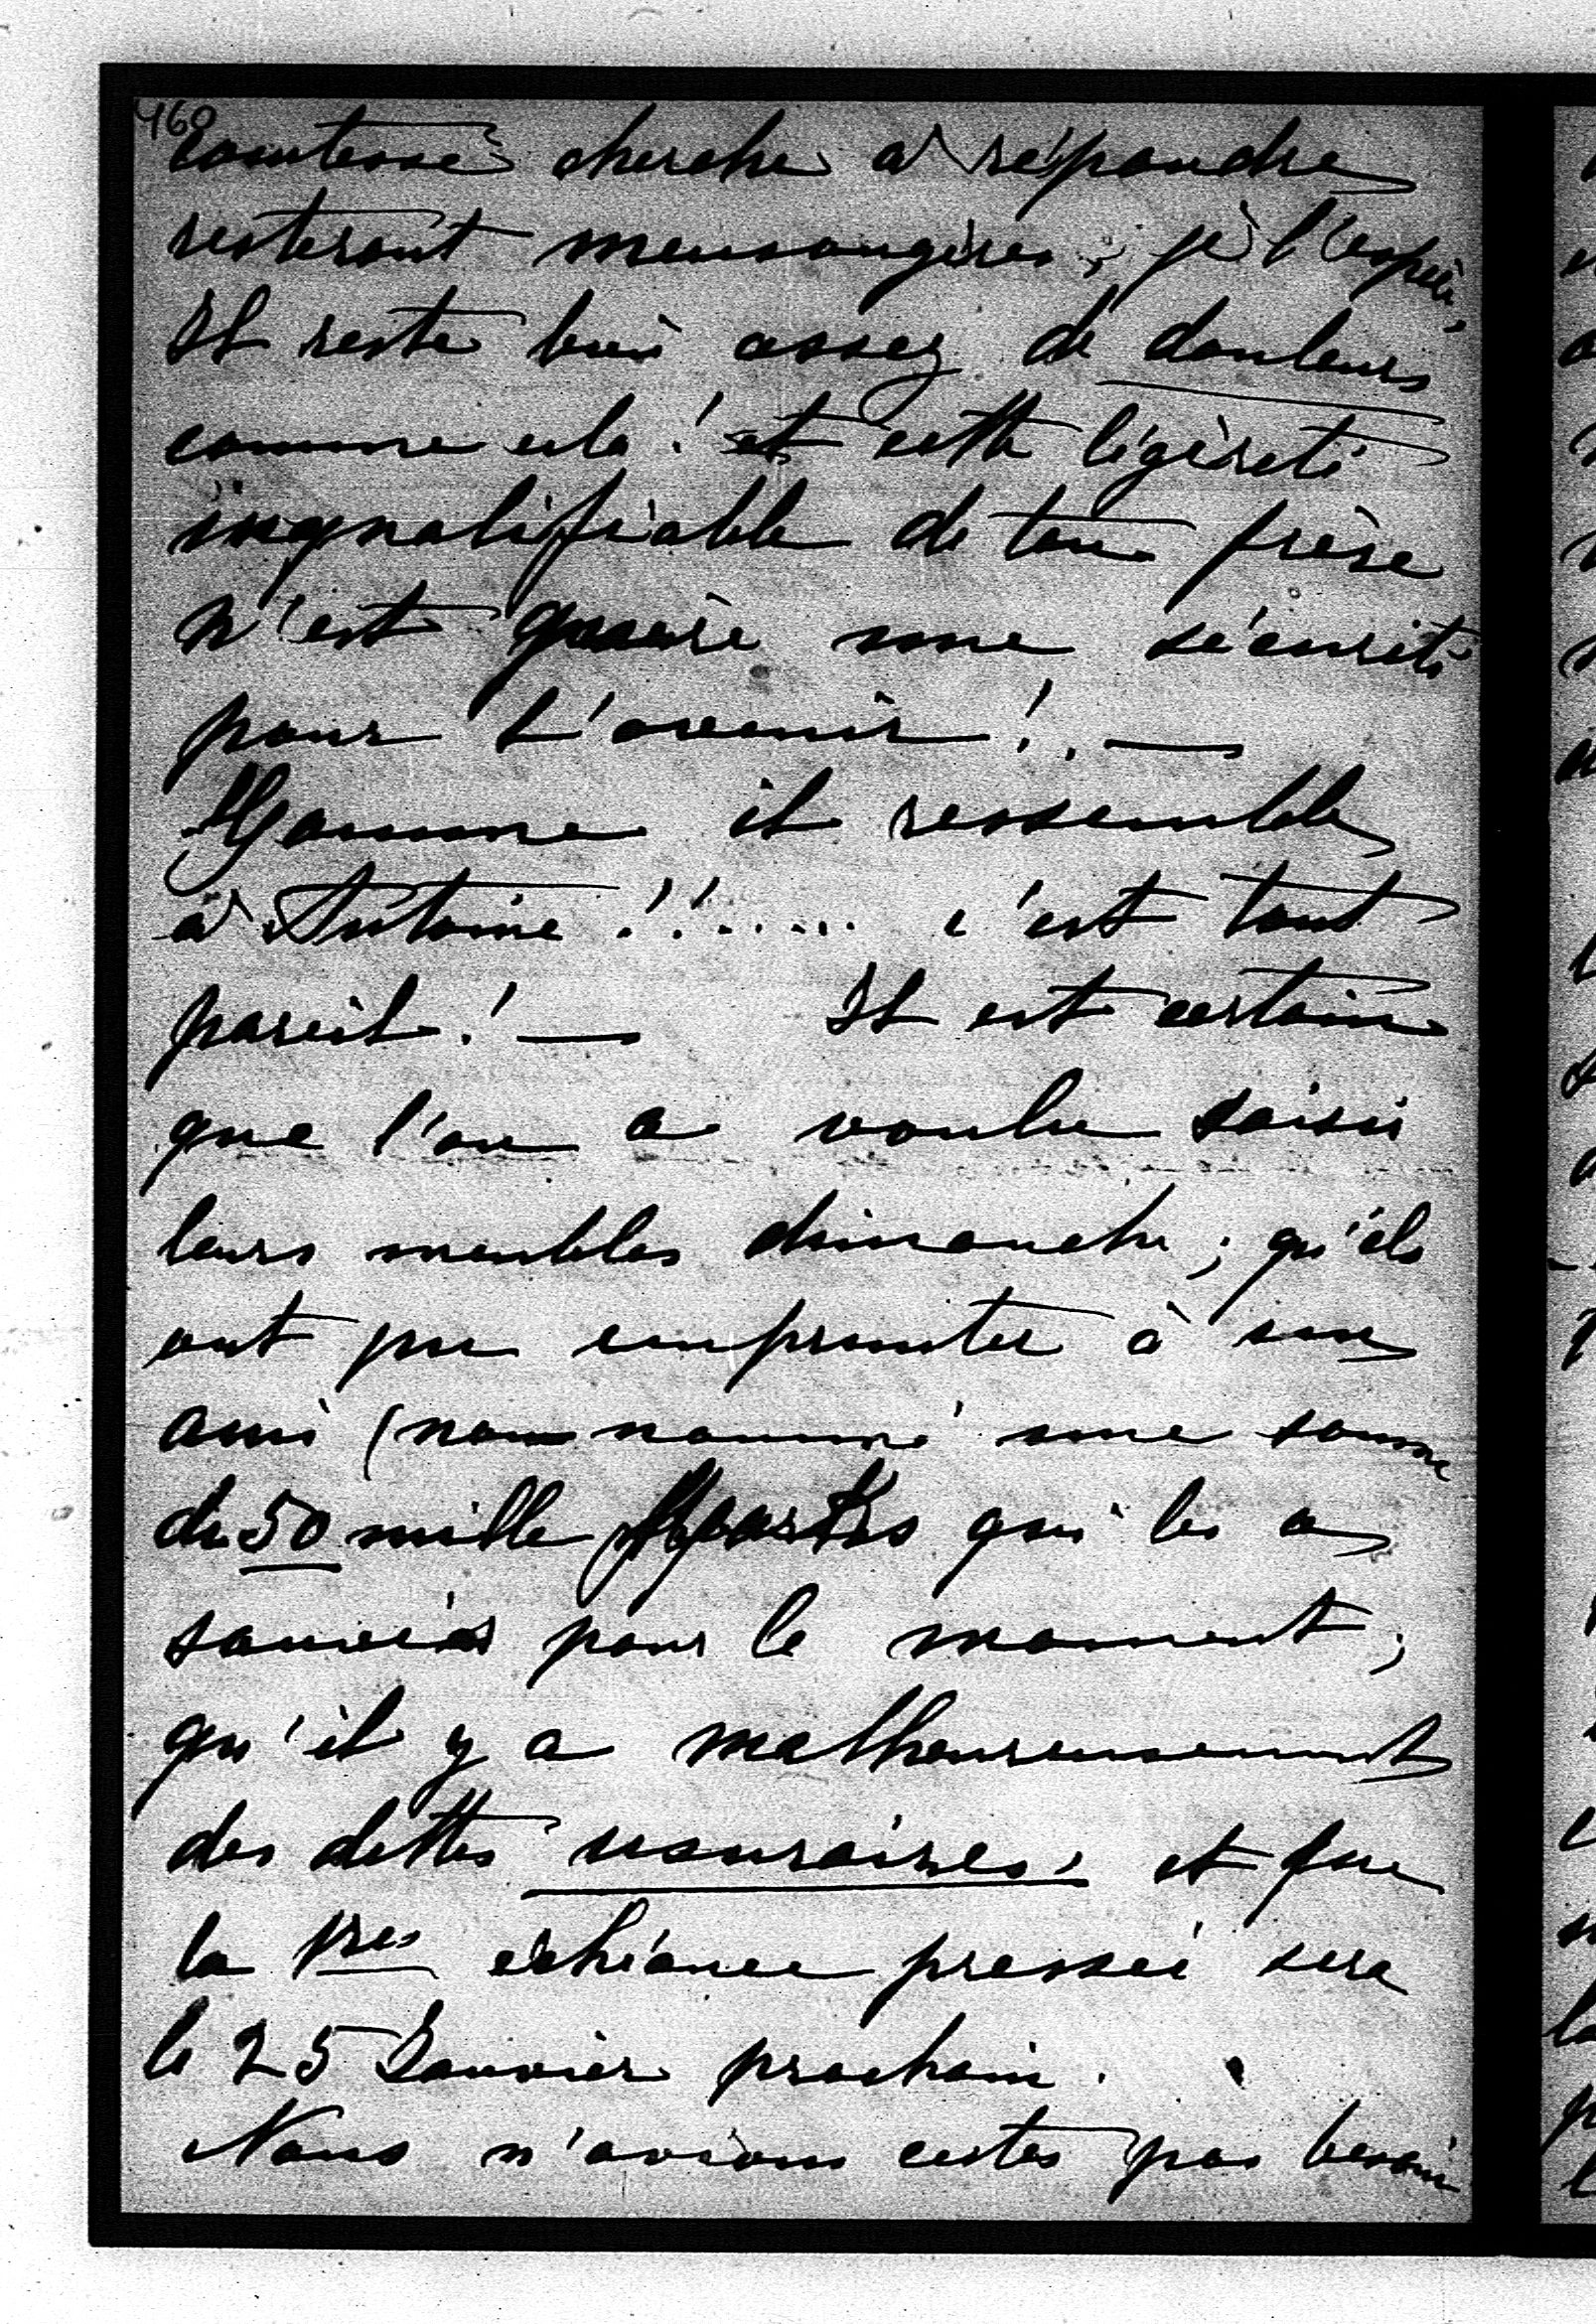 460
Comtesse cherche à répandre
resteront mensongères, je l'espère,
Il reste bien assez de douleurs
comme cela ! et cette légèreté
inqualifiable de ton frère
n'est guère une sécurité
pour l'avenir ! —
Comme il ressemble
à Antoine !!...... c'est tout
pareil ! — Il est certain
que l'on a voulu saisir
leurs meubles dimanche ; qu'ils
ont pu emprunter à un
ami (non nommé une somme
de 50 mille qui les a
sauvés pour le moment ;
qu'il y a malheureusement
des dettes usuraires, et que
la 1re échéance pressée sera
le 25 Janvier prochain.
Nous n'avions certes pas besoin